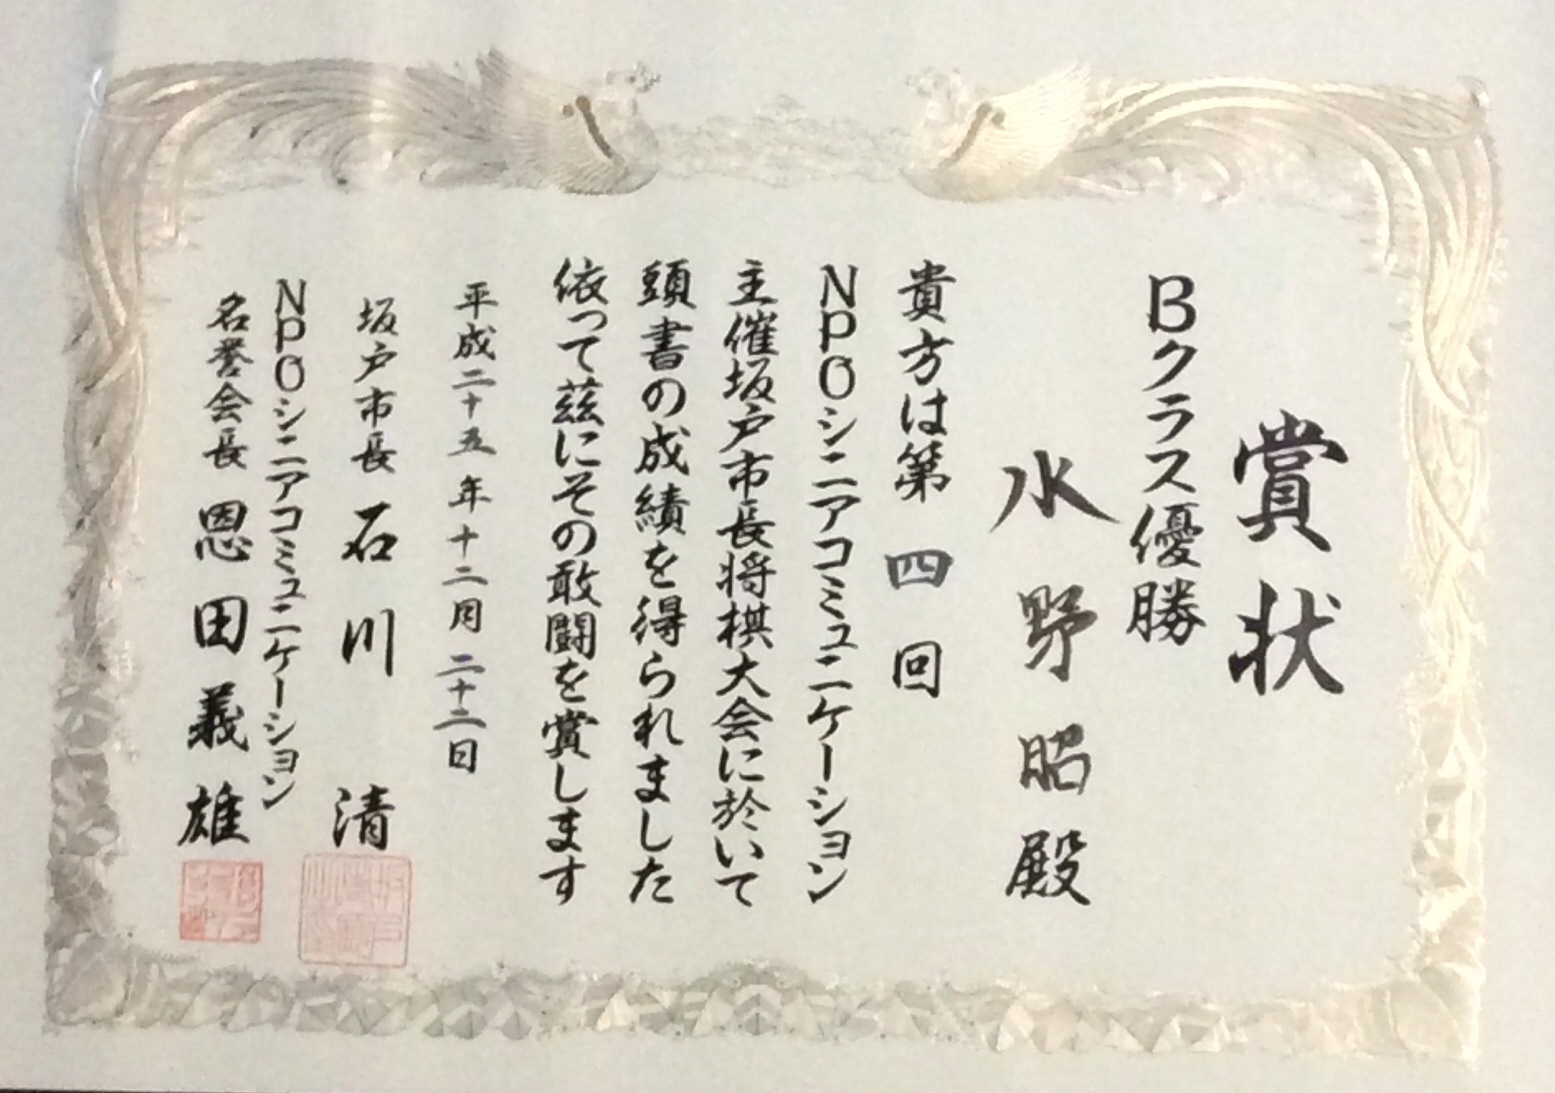 賞状
Bクラス優勝
水野昭殿
貴方は第四回
NPOシニアコミュニケーション
主催坂戸市長将棋大会に於いて
頭書の成績を得られました
依って茲にその敢闘を賞します
平成二十五年十二月二十二日
坂戸市長 石川清
NPOシニアコミュニケーション
名誉会長 恩田義雄